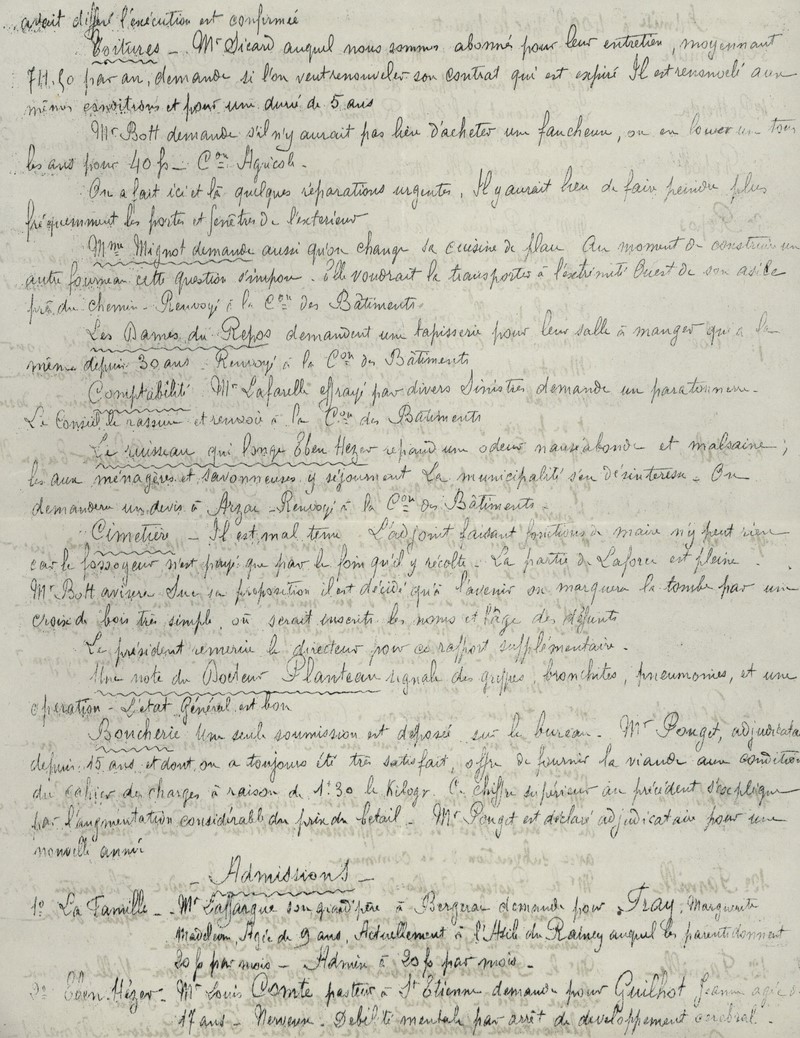 avait différé l'exécution est confirmée
Toitures - Mr Sicard auquel nous sommes abonnés pour leur entretien, moyennant
par an, demande si l'on veut renouveler son contrat qui est expiré Il est renouvelé aux
mêmes conditions et pour une durée de 5 ans
Mr Bott demande s'il n'y aurait pas lieu d'acheter une faucheuse, ou en louer une tous
les ans pour 40 fs - Con Agricole -
On a fait ici et là quelques réparations urgentes, Il y aurait lieu de faire peindre plus
fréquemment les portes et fenêtres de l'extérieur
Mme Mignot demande aussi qu'on change sa cuisine de place Au moment de construire un
autre fourneau cette question s'impose - Elle voudrait la transporter à l'extrémité Ouest de son asile
près du chemin - Renvoyé à la Con des Bâtiments -
Les Dames du Repos demandent une tapisserie pour leur salle à manger qui a la
même depuis 30 ans - Renvoyé à la Con des Bâtiments
Comptabilité Mr Lafarelle effrayé par divers Sinistres demande un paratonnerre -
Le Conseil le rassure et renvoie à la Con des Bâtiments
Le ruisseau qui longe Eben Hezer répand une odeur nauséabonde et malsaine ;
les aux ménagères et savonneuses y séjournent La municipalité s'en désintéresse - On
demandera un devis à Arzac - Renvoyé à la Con des Bâtiments -
Cimetière - Il est mal tenu L'adjoint faisant fonctions de maire n'y peut rien
car le fossoyeur n'est payé que par le foin qu'il y récolte - La partie de Laforce est pleine -
Mr Bott avisera Sur sa proposition il est décidé qu'à l'avenir on marquera la tombe par une
croix de bois très simple, où serait inscrits les noms et l'âge des défunts
Le président remercie le directeur pour ce rapport supplémentaire -
Une note du Docteur Planteau signale des grippes, bronchites, pneumonies, et une
opération - L'état Général est bon
Boucherie Une seule soumission est déposée sur le bureau - Mr Pouget, adjudicata
depuis 15 ans et dont on a toujours été très satisfait, offre de fournir la viande aux condition
du cahier des charges à raison de 1f30 le Kilogr. Ce chiffre supérieur au précédent s'explique
par l'augmentation considérable du prix du bétail - Mr Pouget est déclaré adjudicataire pour une
nouvelle année
- Admissions -
1o La Famille - Mr Laffargue son grand'père à Bergerac demande pour Tray, Marguerite
Madeleine, Agée de 9 ans, Actuellement à l'Asile du Raincy auquel les parents donnent
20 fs par mois - Admise à 20 fs par mois -
2o Eben-Hézer - Mr Louis Comte pasteur à St Etienne demande pour Guilhot Jeanne agée d
17 ans - Nerveuse - Débilité mentale par arrêt de développement cérébral -